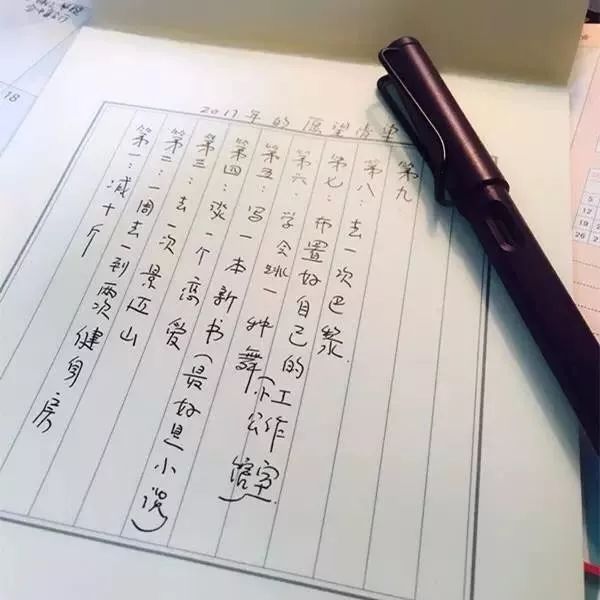 2017年的愿望清单
第一：减十斤
第二：一周去一到两次健身房
第三：去一次景迈山
第四：谈一个恋爱
第五：写一本新书（最好是小说）
第六：学会跳一种舞
第七：布置好自己的工作室
第八：去一次巴黎
第九
18